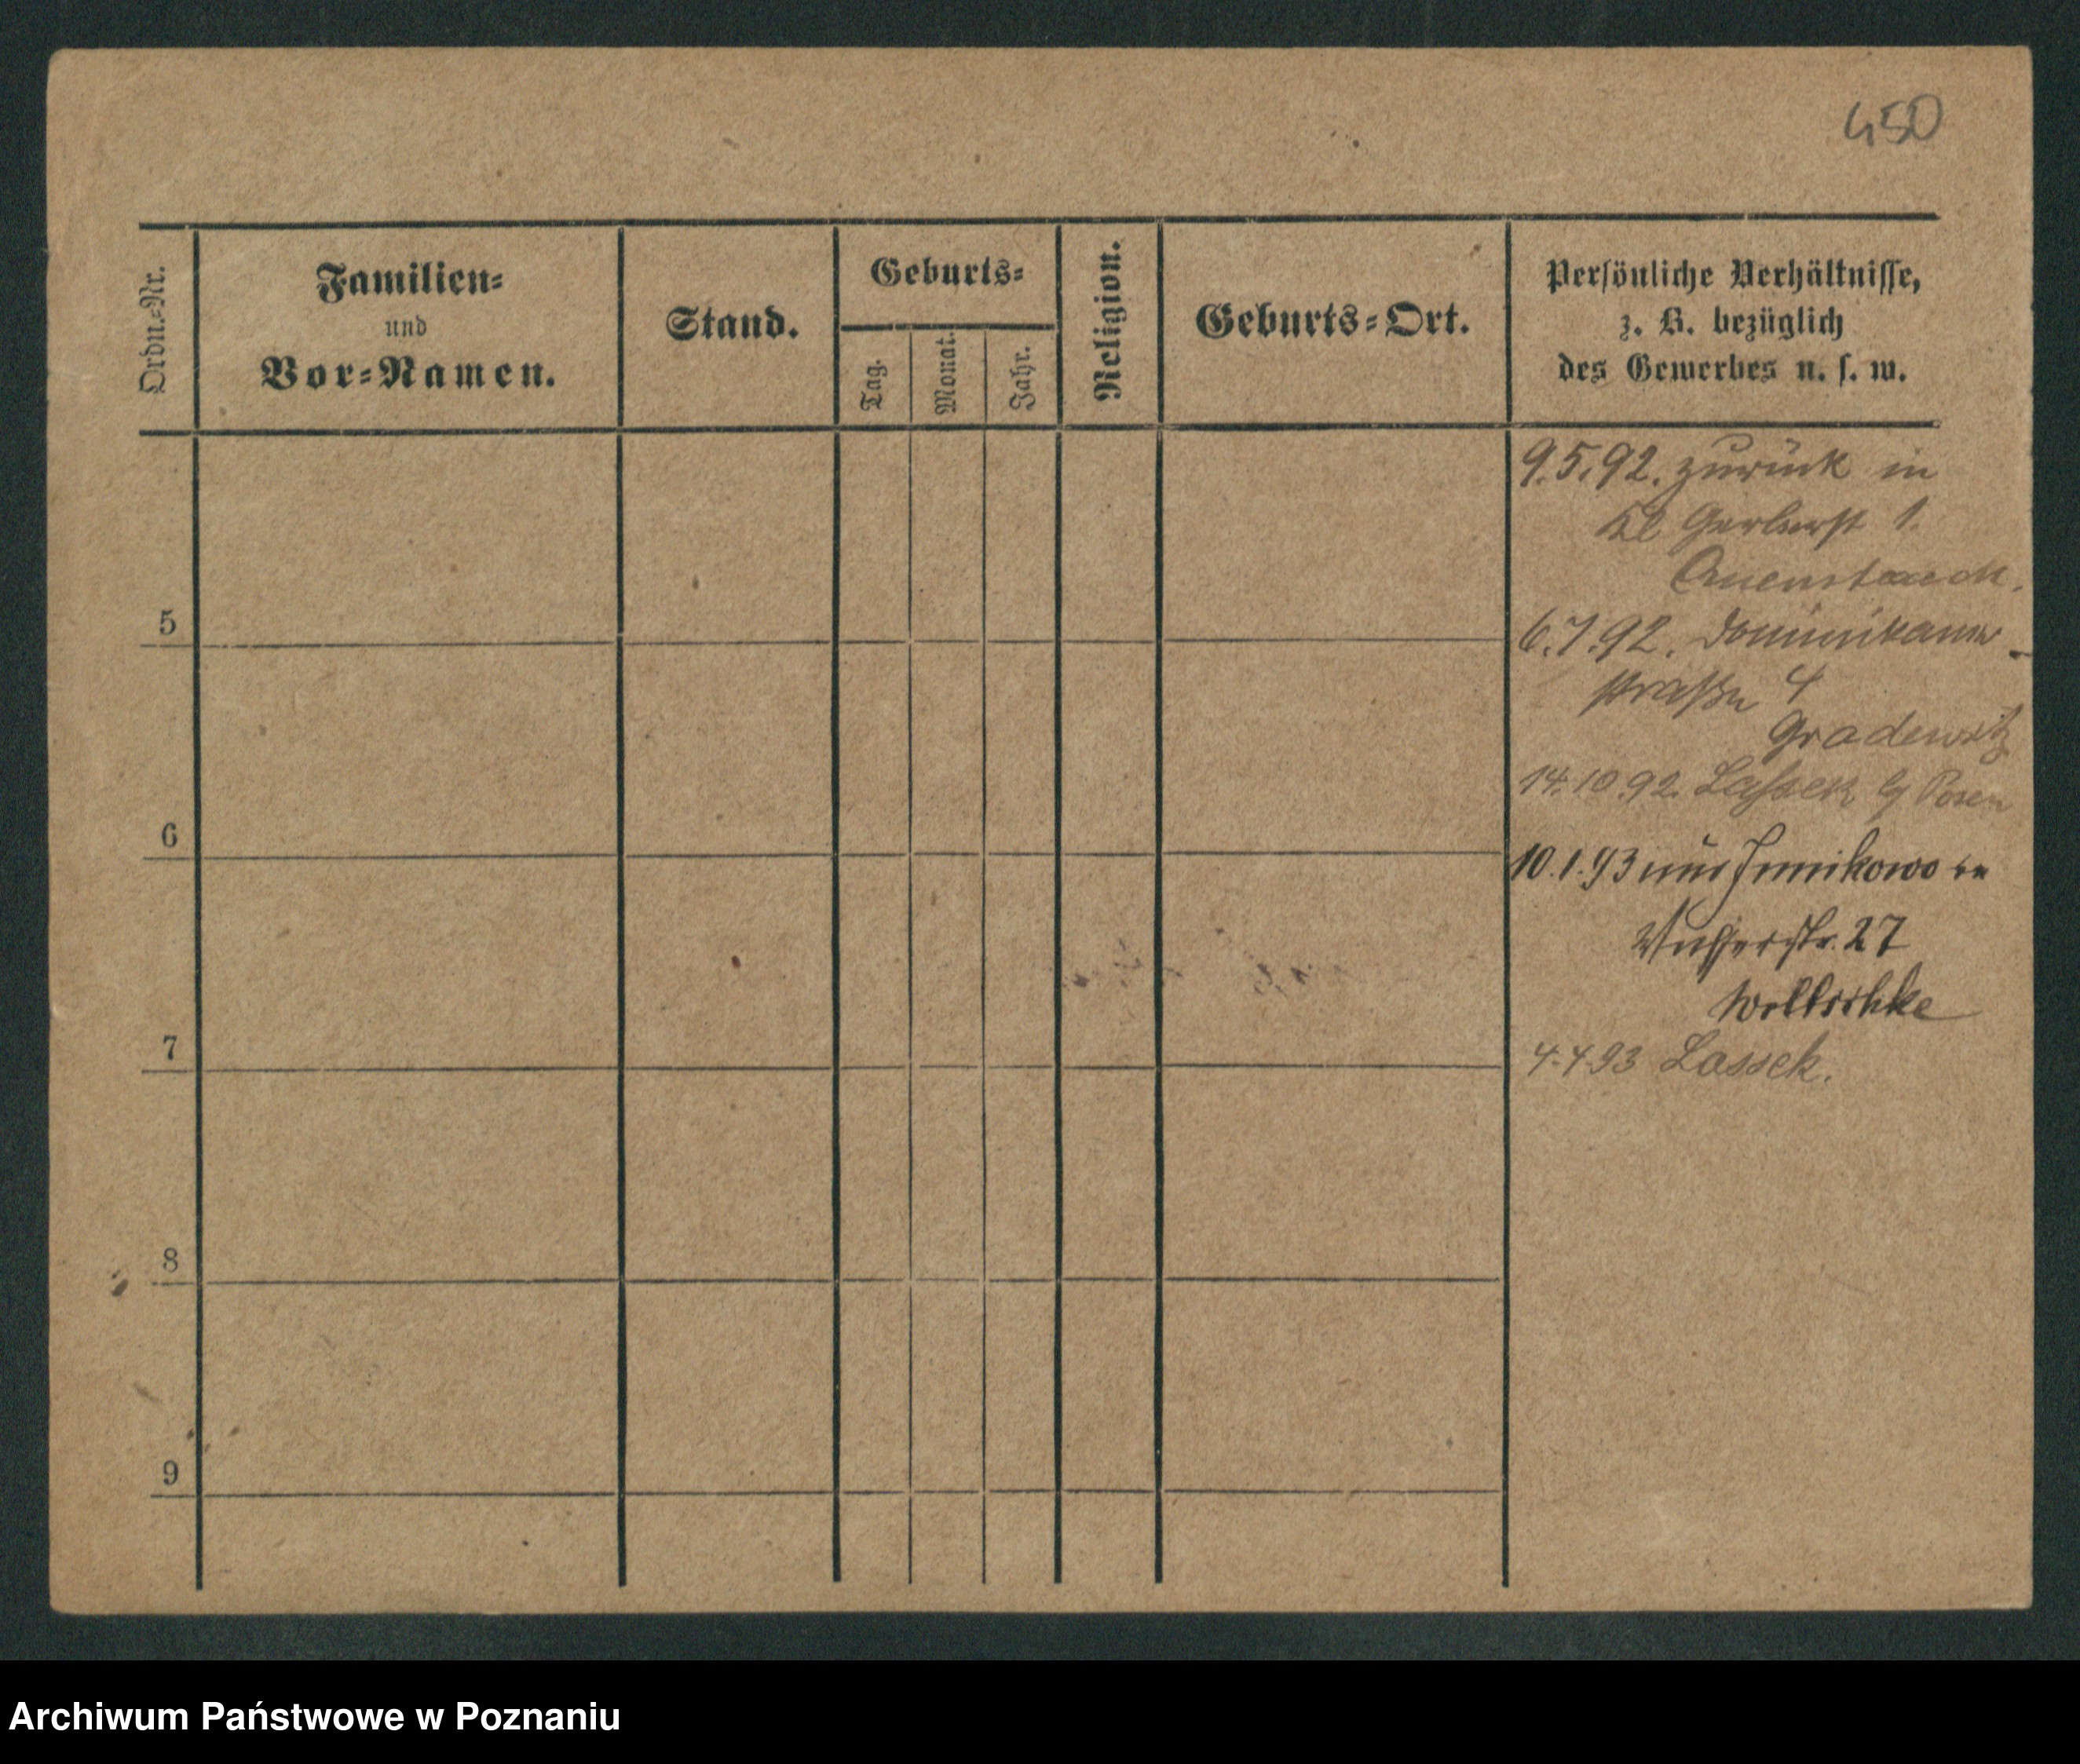 450
Ordn.-Nr.
Familien-
und
Vor-Namen.
Stand.
Geburts-
Tag.
Monat.
Jahr.
Religion.
Geburts-Ort.
Persönliche Verhältnisse,
z. B. bezüglich
des Gewerbes u. s. w.
9.5.92. zurück in
Kl Gerberst 1.
6.7.92. Dominikaner-
straße 4
Gradewitz
14.10.92. Lassek b/ Posen
10.1.93 aus Junikowo in
Wasserstr. 27
4.4.93 Lassek.
5
6
7
8
9
Archiwum Państwowe w Poznaniu